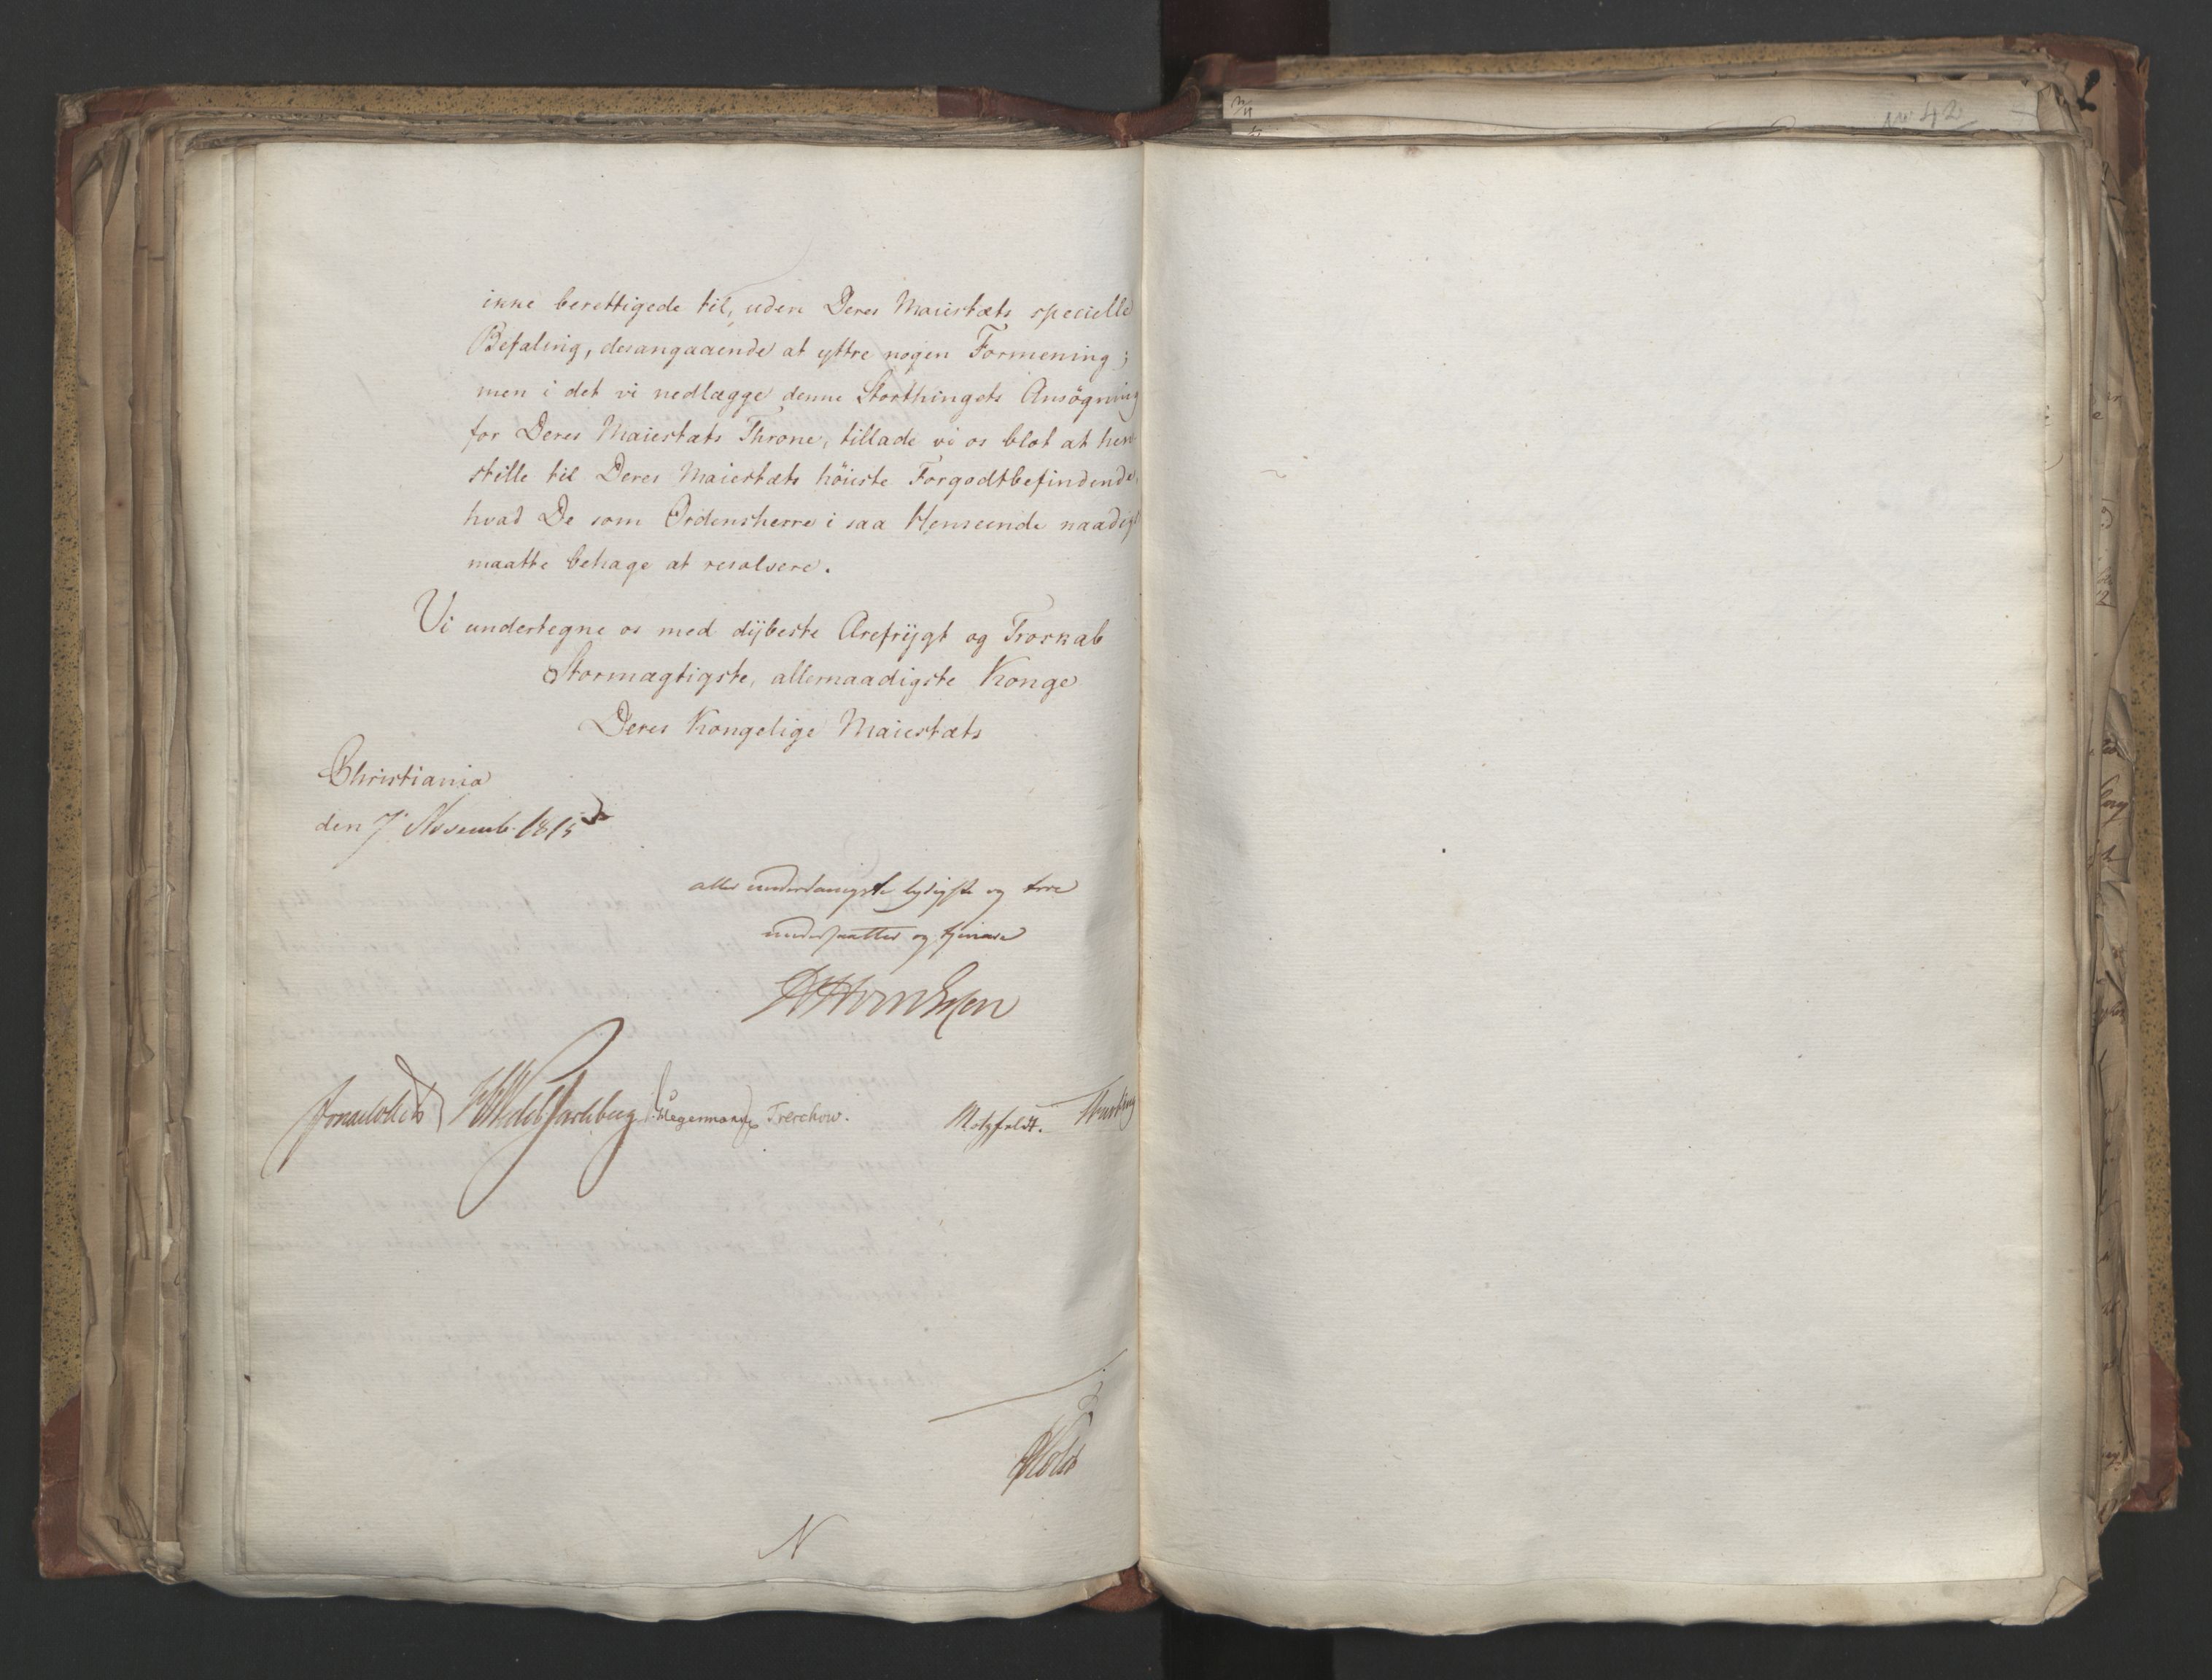 ikke berettigede til, uden Deres Maiestæts specielle
Befaling, desangaaende at yttre nogen Formening;
men i det vi nedlægge denne Storthingets Ansögning
for Deres Maiestæts Throne, tillade vi os blot at hen
stille til Deres Maiestæts höieste Forgodtbefindende,
hvad De som Ordensherre i saa Henseende naadigst
maatte behage at resolvere.
Vi undertegne os med dÿbeste Ærefrÿgt og Troskab
Stormægtigste, allernaadigste Konge
Deres Kongelige Maiestæts
Christiania
den 7 Novemb. 1815
aller underdanigste lydigste og troe
undersaatter og tjenere
Sommerhielm HWedelJarlsberg Hegermann Treschow. Motzfeldt.
Holst
N
No 42